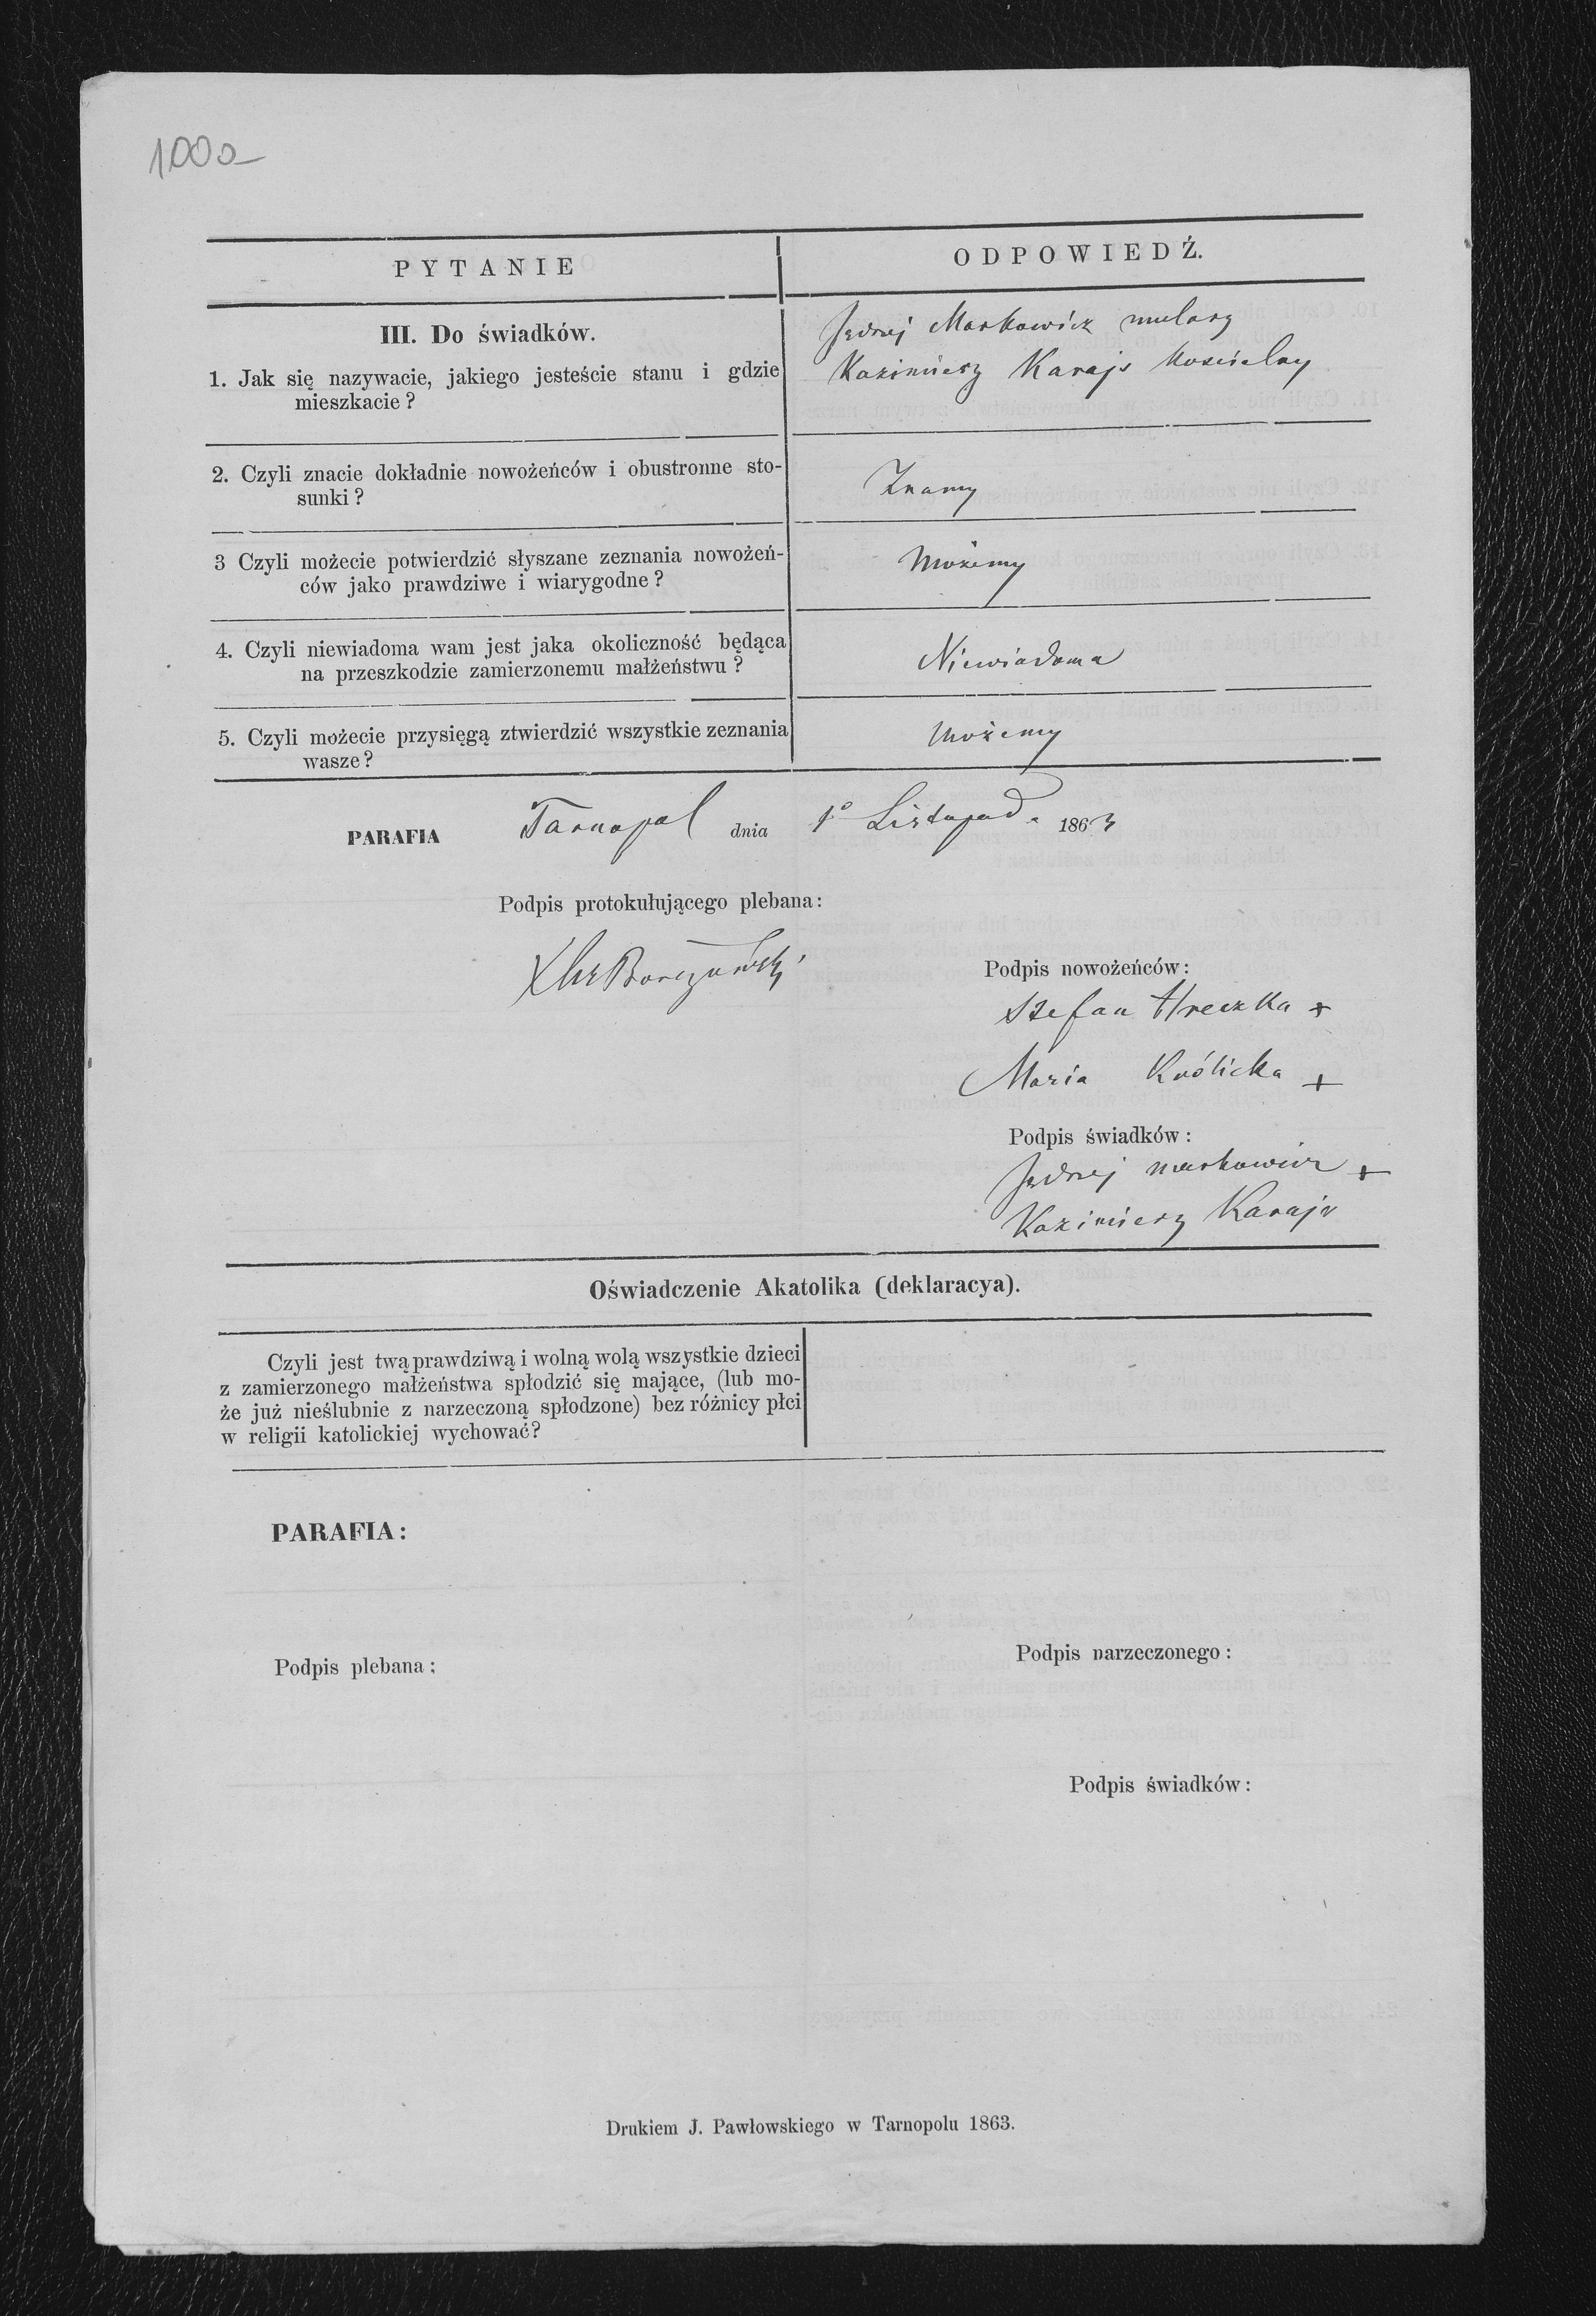 1000
PYTANIE
ODPOWIEDŹ.
III. Do świadków.
1. Jak się nazywacie, jakiego jesteście stanu i gdzie
mieszkacie?
Jędrzej Markowicz mularz
Kazimierz Karajs kościelny
2. Czyli znacie dokładnie nowożeńców i obustronne sto-
sunki?
Znamy
3 Czyli możecie potwierdzić słyszane zeznania nowożeń-
ców jako prawdziwe i wiarygodne?
Możemy
4. Czyli niewiadoma wam jest jaka okoliczność będąca
na przeszkodzie zamierzonemu małżeństwu?
Niewiadoma
5. Czyli możecie przysięgą ztwierdzić wszystkie zeznania
wasze?
Możemy
PARAFIA Tarnopol dnia 1º Listopada 1863
Podpis protokułującego plebana:
Podpis nowożeńców:
Stefan Hreczka +
Maria Królicka +
Podpis świadków:
Jędrzej Markowicz +
Kazimierz Karajs
Oświadczenie Akatolika (deklaracya).
Czyli jest twą prawdziwą i wolną wolą wszystkie dzieci
z zamierzonego małżeństwa spłodzić się mające, (lub mo-
że już nieślubnie z narzeczoną spłodzone) bez różnicy płci
w religii katolickiej wychować?
PARAFIA:
Podpis plebana:
Podpis narzeczonego:
Podpis świadków:
Drukiem J. Pawłowskiego w Tarnopolu 1863.